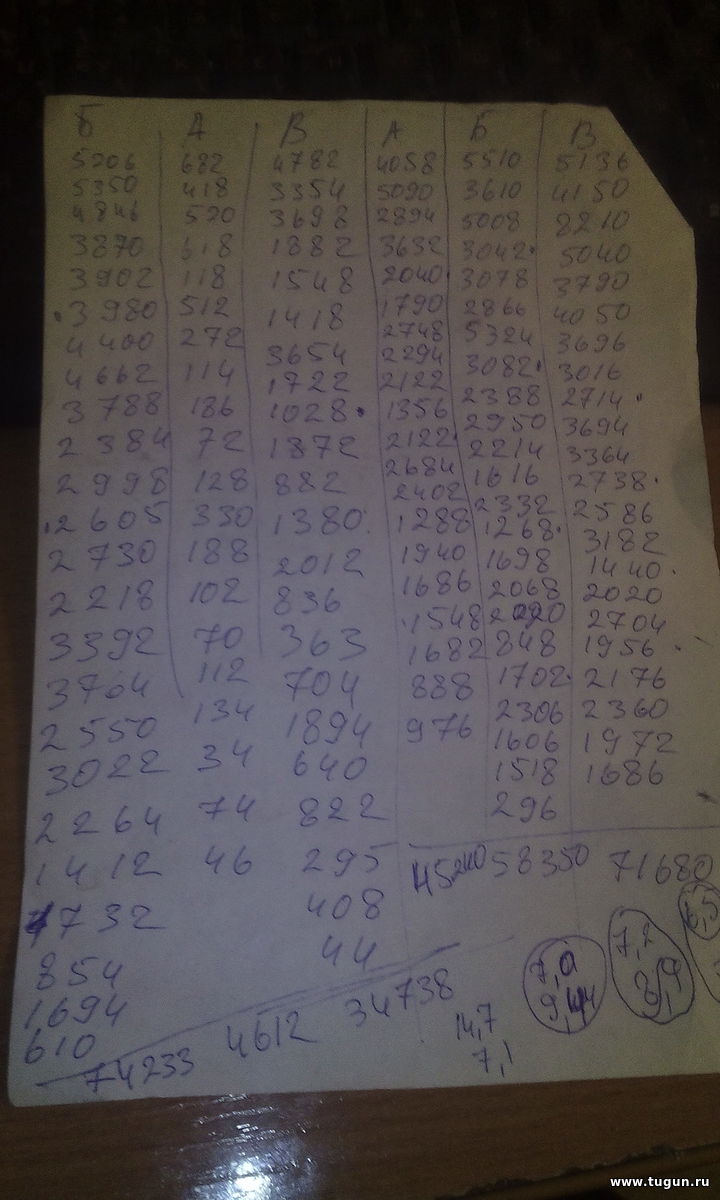 Б А В А Б В
5206 682 4782 4058 5510 5136
5350 418 3354 5090 3610 4150
4846 520 3698 2894 5008 8210
3870 618 1882 3632 3042 5040
3902 118 1548 2040 3078 3790
3980 512 1418 1790 2866 4050
4400 272 3654 2748 5324 3696
4662 114 1722 2294 3082 3016
3788 186 1028 2122 2388 2714
2384 72 1872 1356 2950 3694
2998 128 882 2122 2214 3364
2605 330 1380 2684 1616 2738
2730 188 2012 2402 2332 2586
2218 102 836 1288 1268 3182
3392 70 363 1940 1698 1440
3764 112 704 1686 2068 2020
2550 134 1894 1548 2020 2704
3022 34 640 1682 848 1956
2264 74 822 888 1702 2176
1412 46 295 976 2306 2360
1732 408 1606 1972
854 44 1518 1686
1694 296
610
74233 4612 34738
45240 58350 71680
14,7
7,1
7,0
9,44
7,2
8,9
6,5
www.tugun.ru